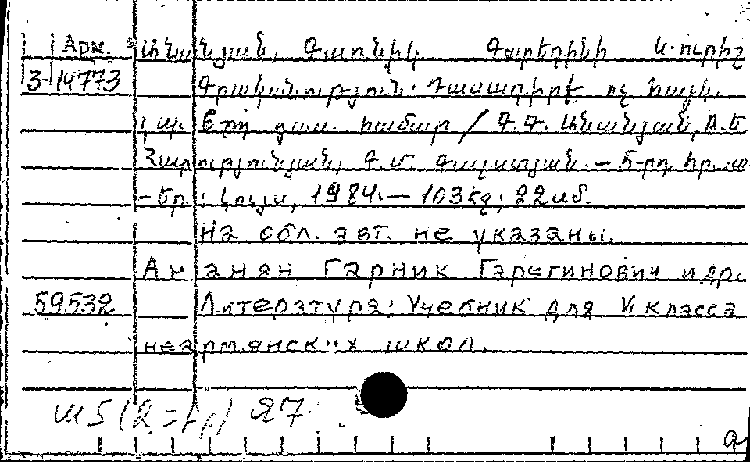 Арм. Անանյան, Գառնիկ Գարեգինի և ուրիշ
3-14773 Գրականություն: Դասագիրք ոչ հայկ.
դպր. 6-րդ դաս. համար / Գ.Գ. Անանյան,
Հարությունյան, Գ.Մ. Գալստյան. – 5-րդ հր.
– Եր.: Լույս, 1984. – 103 էջ; 22 սմ.
На обл. авт. не указаны.
Ананян Гарник Гарегинович и др.
59532 Литература: Учебник для VI класса
неармянских школ.